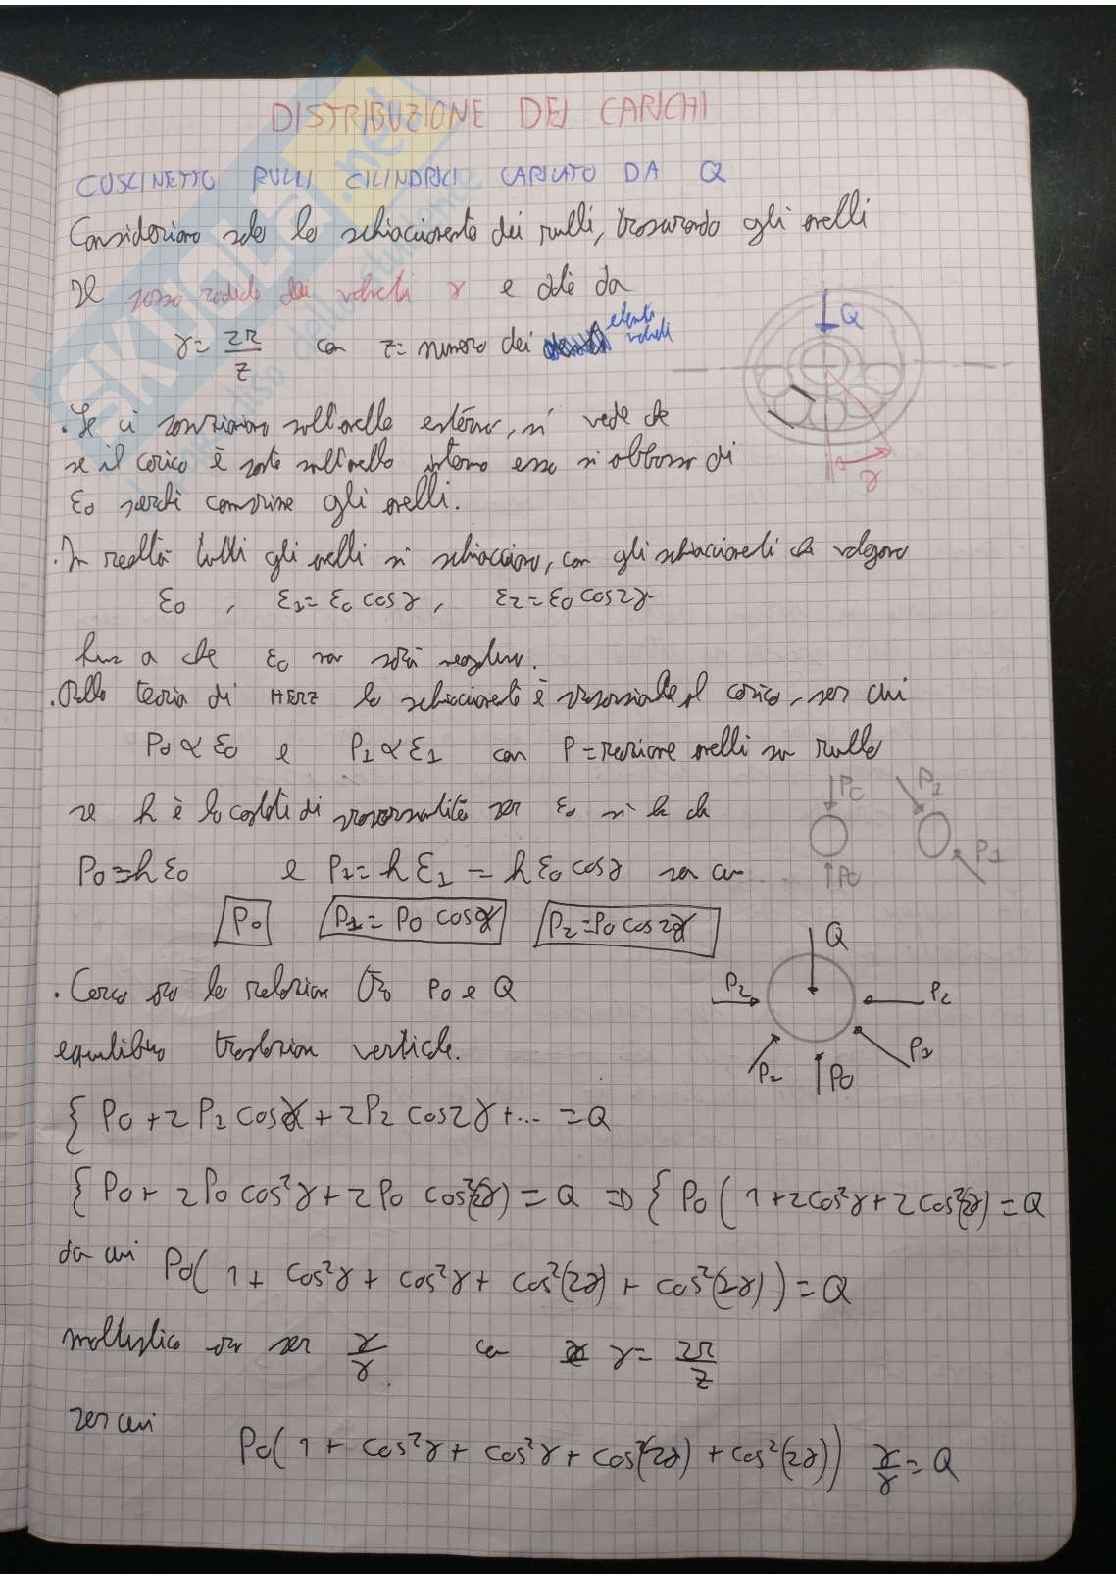 DISTRIBUZIONE DEI CARICHI
CUSCINETTO RULLI CILINDRICI CARICATO DA Q
Consideriamo solo lo schiacciamento dei rulli, trascurando gli anelli
Il passo radiale dei volventi γ e dato da
γ = 2π/z con z = numero dei elementi volventi
Q
γ
. Se ci posizioniamo sull'anello esterno, si vede che
se il carico è posto sull'anello interno esso si abbassa di
ε0 perchè comprime gli anelli.
. In realtà tutti gli anelli si schiacciano, con gli schiacciamenti che valgono
ε0 , ε1 = ε0 cosγ , ε2 = ε0 cos2γ
fino a che ε0 non sarà negativo.
. Dalla teoria di HERZ lo schiacciamento è proporzionale al carico, per cui
P0 ∝ ε0 e P1 ∝ ε1 con P = reazione anelli su rullo
se h è la costante di proporzionalità per ε0 si ha che
P0 P0 P1 P1
P0 = h ε0 e P1 = h ε1 = h ε0 cosγ per cui
P0 P1 = P0 cosγ P2 = P0 cos2γ
. Cerco ora la relazione tra P0 e Q
equilibrio traslazione verticale.
Q
P2 P2
P1 P0 P1
{ P0 + 2 P1 cosγ + 2P2 cos2γ + ... = Q
{ P0 + 2 P0 cos²γ + 2 P0 cos²(2γ) = Q => { P0 ( 1 + 2cos²γ + 2 cos²(2γ) = Q
da cui P0( 1 + cos²γ + cos²γ + cos²(2γ) + cos²(2γ) ) = Q
moltiplico ora per γ/γ con γ = 2π/z
per cui
P0( 1 + cos²γ + cos²γ + cos²(2γ) + cos²(2γ) ) γ/γ = Q
SKUOLA.net